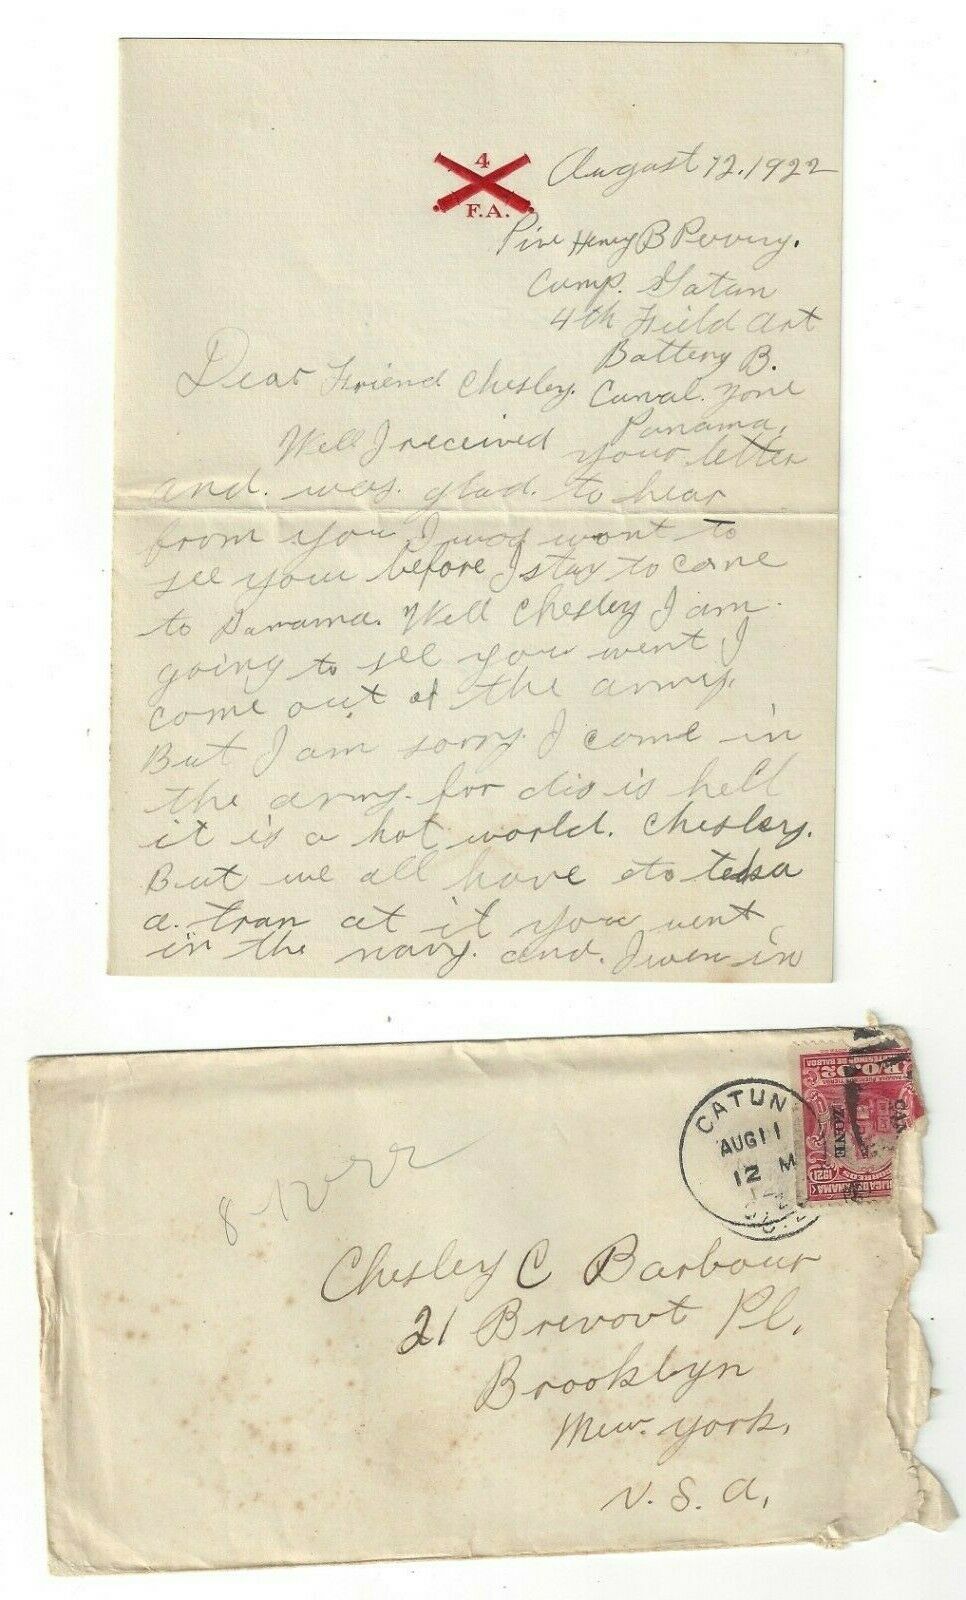 4
F.A.
August 12. 1922
Henry B
Camp. Gatun
4th Field Art
Battery B.
Canal. Zone
Panama,
Dear Friend Chesley.
Well I received your letter
and. was. glad. to hear
from you I wont to
see your before I stay to come
to Panama. Well Chesley I am
going to see you went I
come out of the army.
But I am sorry. I come in
the army. for dis is hell
it is a hot world. Chesley.
But we all have to
a. tran at it you went
in the navy. and. I wen in
CATUN
AUG 11
12 M
CANAL
ZONE
1921
8-12-22
Chesley C Barbour
21 Brevort Pl,
Brooklyn
New. York.
U. S. A,